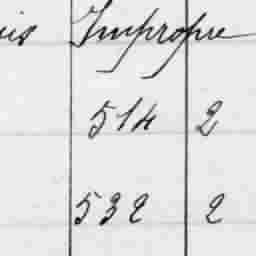 is Impropre
514 2
532 2